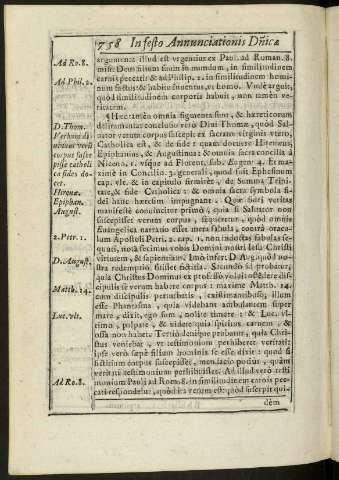 758 In festo Annunciationis Dñicæ
Ad Ro. 8.
Ad Phil. 2.
D. Thom.
Verbum di
uinum veru
corpus susce
pisse catholi
ca fides do-
cet.
Hieron.
Epiphan.
August.
2. Petr. 1.
D. August.
Matth. 14.
Luc. vlt.
Ad Ro. 8.
argumenta illud est vrgentius ex Paul. ad Roman. 8.
misit Deus filium suum in mundum, in similitudinem
carnis peccati: & ad Philip. 2. in similitudinem homi-
num factus: & habitu inuentus, vt homo. Vnde arguit,
quod similitudinem corporis habuit, non tamen ve-
ram carnem.
¶ Hæc tamen omnia figmenta sunt, & hæreticorum
deliramenta: conclusio vero Diui Thomæ, quòd Sal-
uator verum corpus suscepit ex sacrario virginis vtero,
Catholica est, & de fide: quam docuere Hieronymus,
Epiphanius, & Augustinus: & omnia sacra concilia à
Niceno, 1. vsque ad Florent. sub Eugen. 4. Et
maximè in Concilio 3. generali, quod fuit Ephesinum
cap. vlt. & in capitulo firmiter, de Summa Trinit-
ate, & fide Catholica: & omnia sacra symbola fi-
dei hanc hæresim impugnant. Quæ fidei veritas
manifestè conuincitur primò, quia si Saluator non
suscepisset verum corpus, sequeretur, quòd omnis
Euangelica narratio esset mera fabula, contra oracu-
lum Apostoli Petri, 2. cap. 1. non indoctas fabulas se-
quuti, notam fecimus vobis Domini nostri Iesu Christi
virtutem, & sapientiam. Imò infert D. Aug. quòd no-
stra redemptio fuisset fictitia. Secundò id probatur,
quia Christus Dominus ex professo voluit ostendere di-
scipulis se verum habere corpus: maxime Matth. 14.
cum discipulis perturbatis, existimantibus, illum
esse Phantasma, quia videbant ambulantem super
mare, dixit, ego sum, nolite timere: & Luc. vl-
timo, palpate, & videte: quia spiritus carnem, &
ossa non habet. Tertiò denique probatur, quia Chri-
stus veniebat, vt testimonium perhiberet veritati:
ipse verò sæpè filium hominis se esse dixit: quod si
fictitium corpus suscepisset, mendacio potius, quàm
veritati testimonium perhibuisset. Ad illud verò testi
monium Pauli ad Rom. 8. in similitudinem carnis pec-
cati respondetur, quòd ita verum est: quòd suscepit qui-
dem